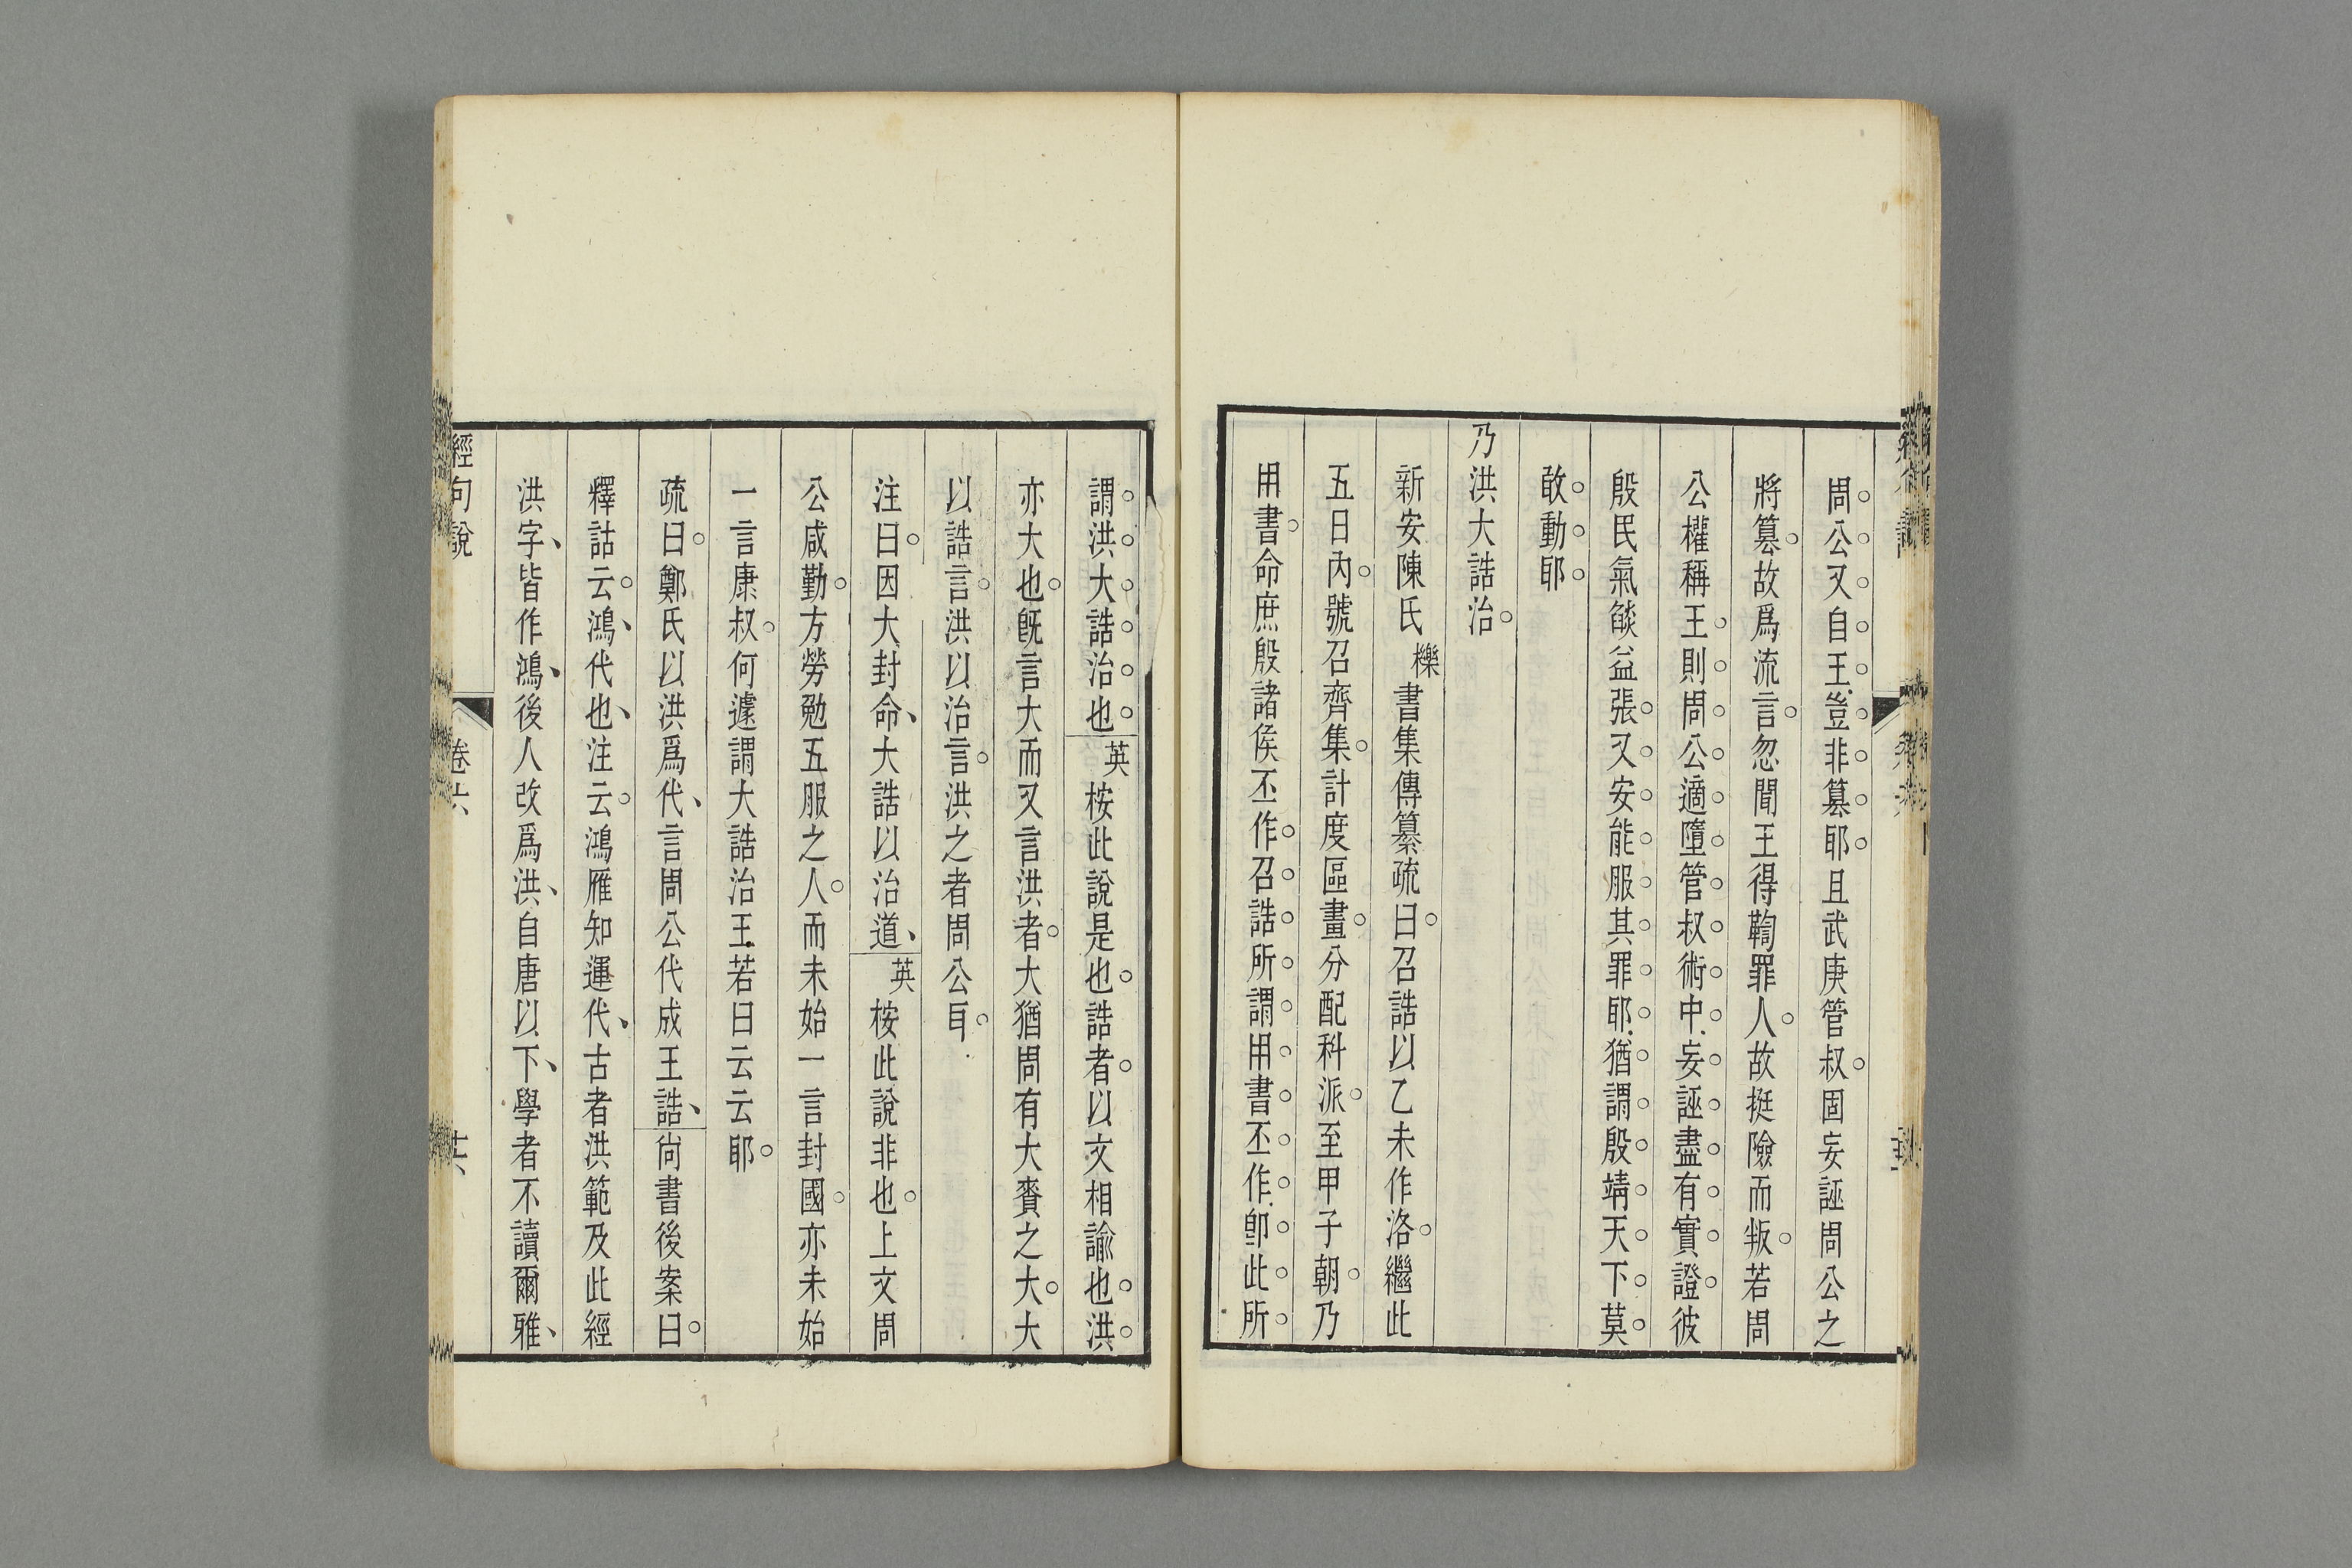 周公又自王豈非篡耶且武庚管叔固妄誣周公之
將篡故爲流言忽聞王得鞫罪人故挺險而叛若周
公權稱王則周公適墮管叔術中妄誣盡有實證彼
殷民氣燄益張又安能服其罪耶猶謂殷靖天下莫
敢動耶
乃洪大誥治
新安陳氏櫟書集傳纂疏曰召誥以乙未作洛繼此
五日內號召齊集計度區畫分配科派至甲子朝乃
用書命庶殷諸侯丕作召誥所謂用書丕作卽此所
謂洪大誥治也英桉此說是也誥者以文相諭也洪
亦大也旣言大而又言洪者大猶周有大賚之大大
以誥言洪以治言洪之者周公耳
注曰因大封命大誥以治道英桉此說非也上文周
公咸勤方勞勉五服之人而未始一言封國亦未始
一言康叔何遽謂大誥治王若曰云云耶
疏曰鄭氏以洪爲代言周公代成王誥尙書後案曰
釋詁云鴻代也注云鴻雁知運代古者洪範及此經
洪字皆作鴻後人改爲洪自唐以下學者不讀爾雅
經句說
卷六